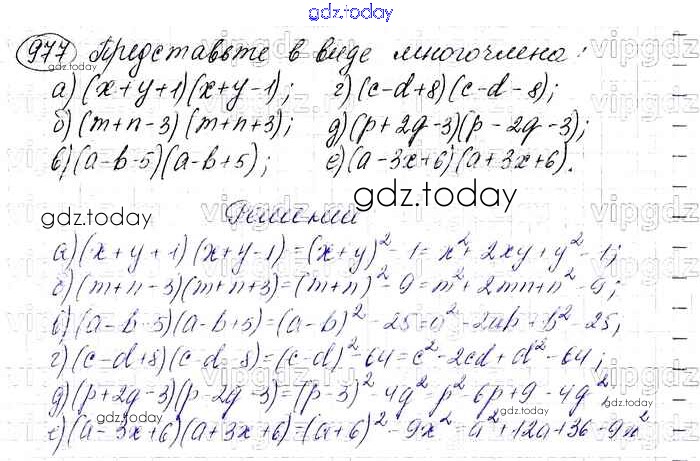 gdz.today
977 Представьте в виде многочлена:
а) (x+y+1)(x+y-1); г) (c-d+8)(c-d-8);
б) (m+n-3)(m+n+3); д) (p+2q-3)(p-2q-3);
в) (a-b-5)(a-b+5); е) (a-3x+6)(a+3x+6).
gdz.today
gdz.today
Решение
а) (x+y+1)(x+y-1)=(x+y)²-1=x²+2xy+y²-1;
б) (m+n-3)(m+n+3)=(m+n)²-9=m²+2mn+n²-9;
в) (a-b-5)(a-b+5)=(a-b)²-25=a²-2ab+b²-25;
г) (c-d+8)(c-d-8)=(c-d)²-64=c²-2cd+d²-64;
д) (p+2q-3)(p-2q-3)=(p-3)²-4q²=p²-6p+9-4q²
gdz.today
gdz.today
е) (a-3x+6)(a+3x+6)=(a+6)²-9x²=a²+12a+36-9x²